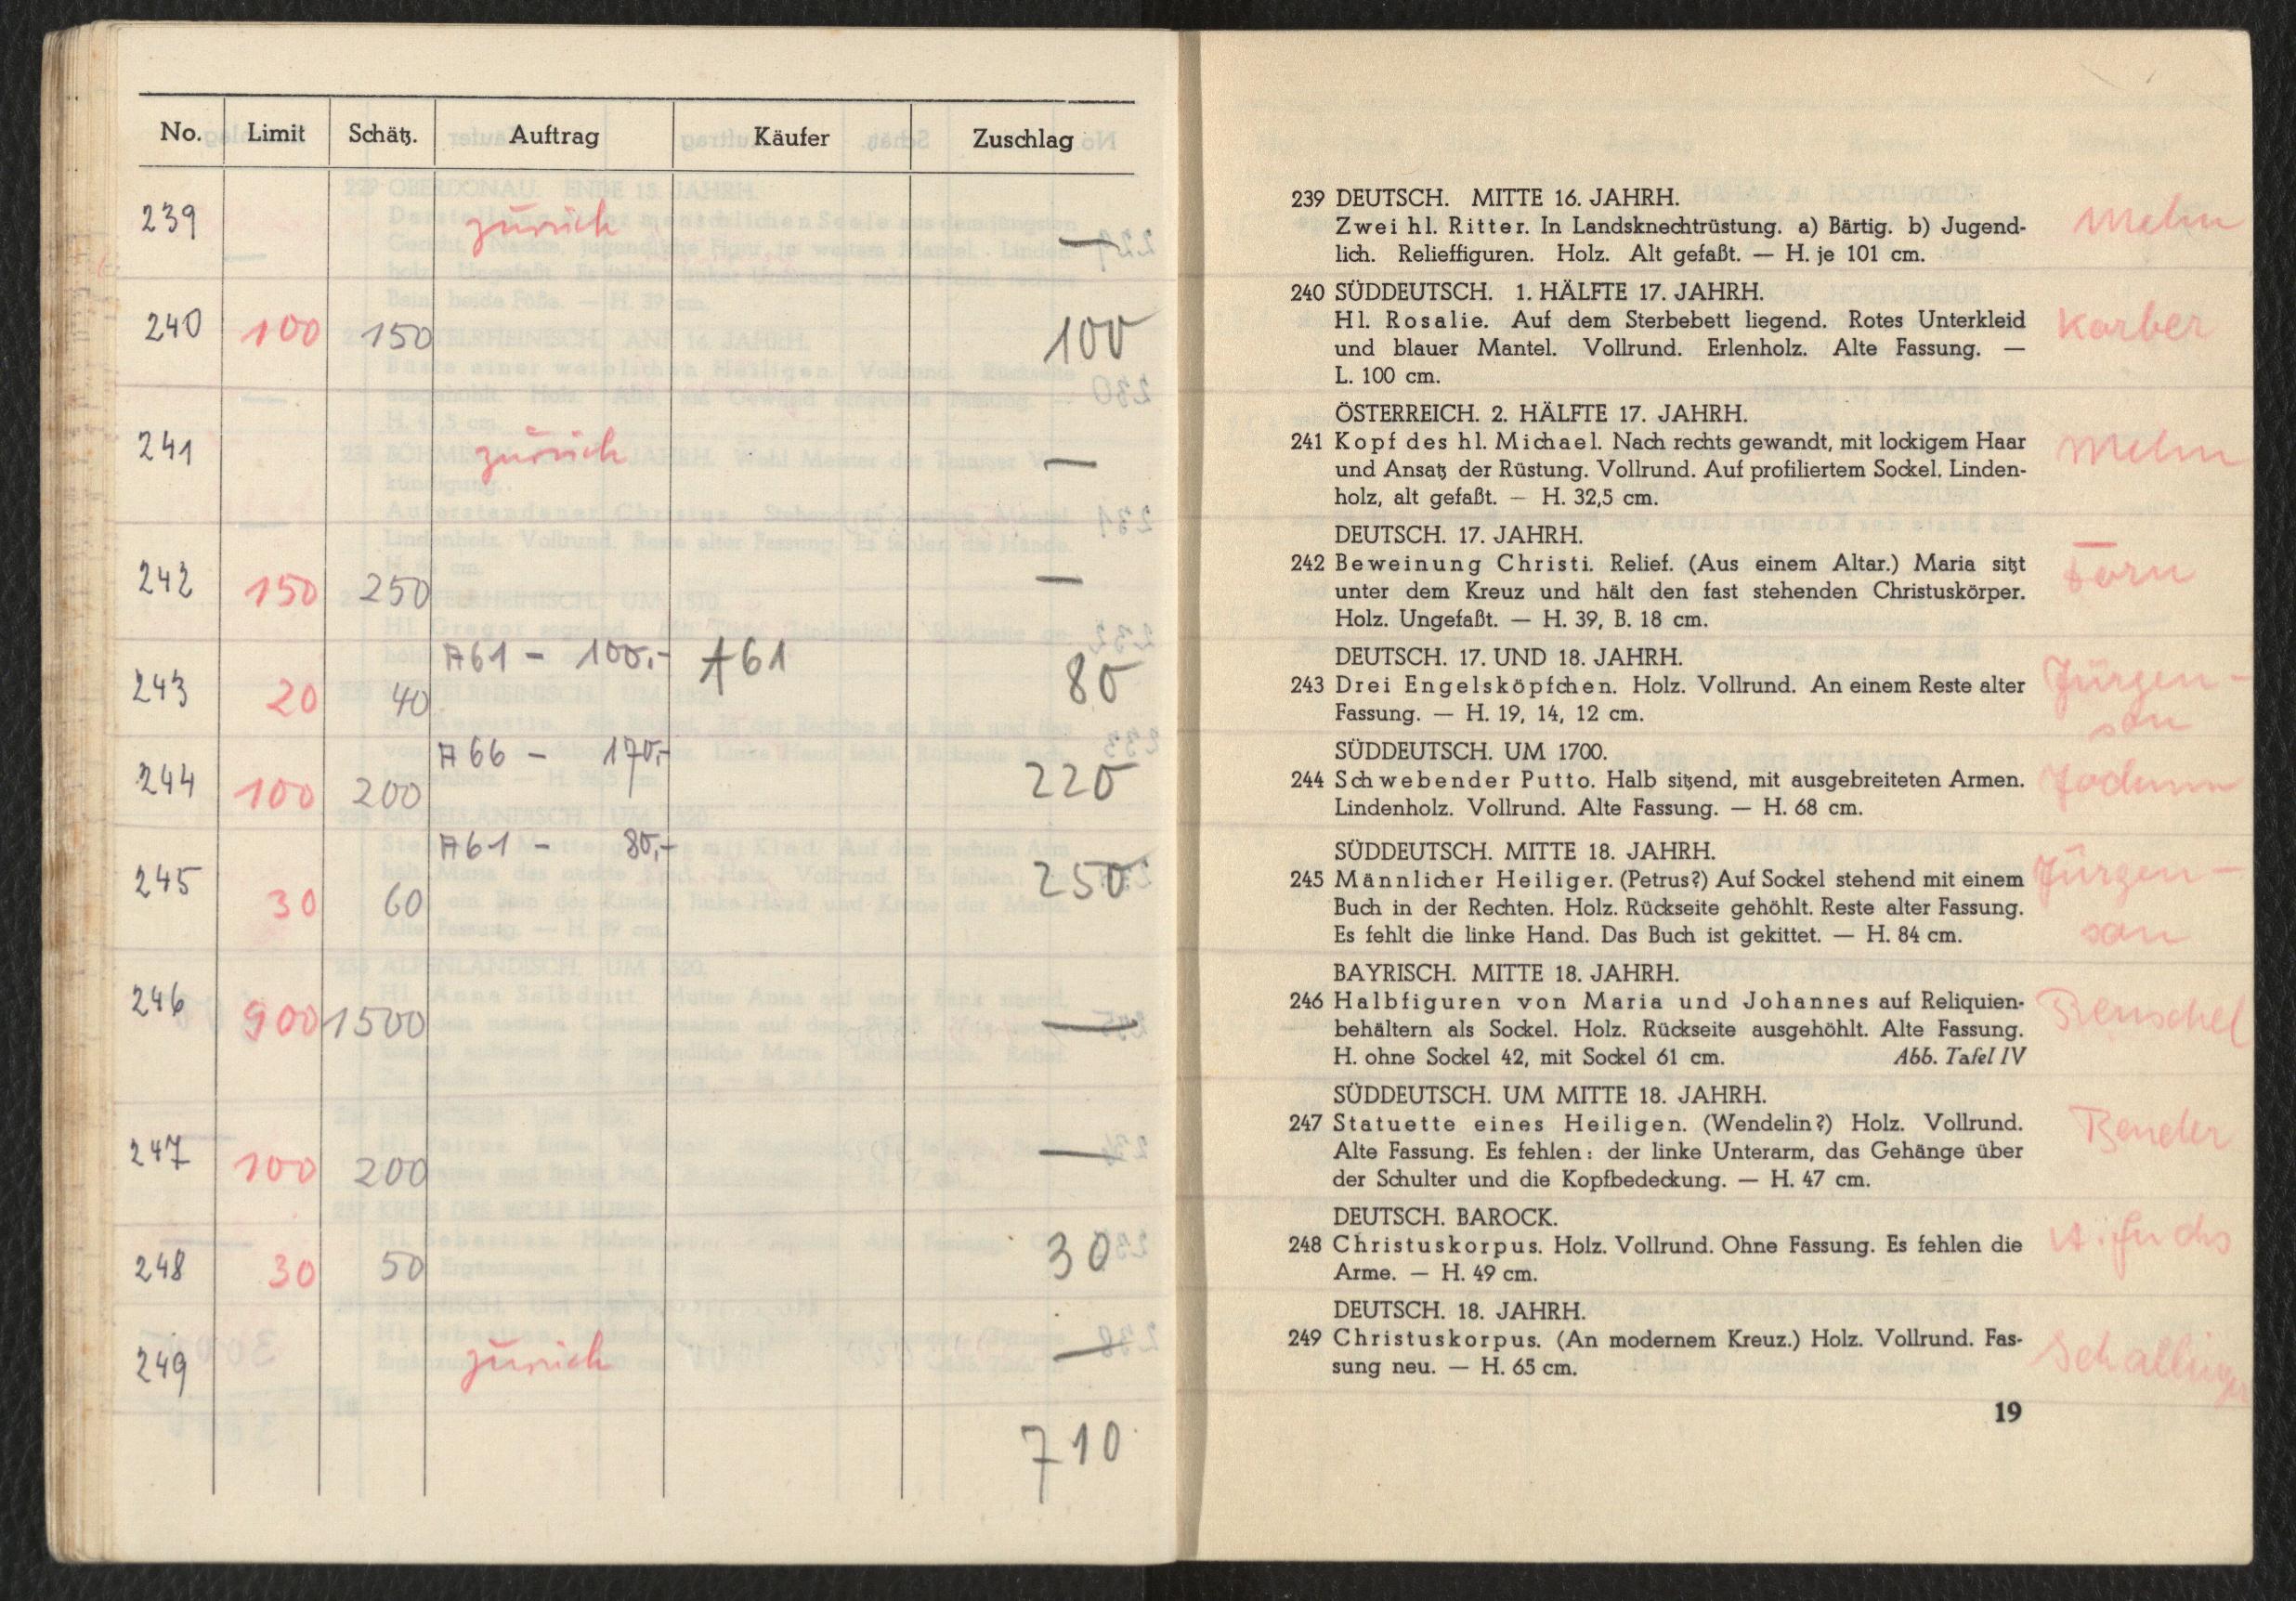 No. Limit Schätz. Auftrag Käufer Zuschlag
239 zürich —
240 100 150 100
241 zürich —
242 150 250 —
A61 - 100.- A61
243 20 40 80
A66 - 170.-
244 100 200 220
A61 - 80.-
245 30 60 250
246 900 1500 —
247 100 200 —
248 30 50 30
249 zürich —
710
239 DEUTSCH. MITTE 16. JAHRH.
Zwei hl. Ritter. In Landsknechtrüstung. a) Bärtig. b) Jugend-
lich. Relieffiguren. Holz. Alt gefaßt. — H. je 101 cm.
240 SÜDDEUTSCH. 1. HÄLFTE 17. JAHRH.
Hl. Rosalie. Auf dem Sterbebett liegend. Rotes Unterkleid Korber
und blauer Mantel. Vollrund. Erlenholz. Alte Fassung. —
L. 100 cm.
ÖSTERREICH. 2. HÄLFTE 17. JAHRH.
241 Kopf des hl. Michael. Nach rechts gewandt, mit lockigem Haar
und Ansatz der Rüstung. Vollrund. Auf profiliertem Sockel. Linden-
holz, alt gefaßt. — H. 32,5 cm.
DEUTSCH. 17. JAHRH.
242 Beweinung Christi. Relief. (Aus einem Altar.) Maria sitzt
unter dem Kreuz und hält den fast stehenden Christuskörper.
Holz. Ungefaßt. — H. 39, B. 18 cm.
DEUTSCH. 17. UND 18. JAHRH.
243 Drei Engelsköpfchen. Holz. Vollrund. An einem Reste alter Jürgen-
Fassung. — H. 19, 14, 12 cm. son
SÜDDEUTSCH. UM 1700.
244 Schwebender Putto. Halb sitzend, mit ausgebreiteten Armen.
Lindenholz. Vollrund. Alte Fassung. — H. 68 cm.
SÜDDEUTSCH. MITTE 18. JAHRH.
245 Männlicher Heiliger. (Petrus?) Auf Sockel stehend mit einem Jürgen-
Buch in der Rechten. Holz. Rückseite gehöhlt. Reste alter Fassung.
Es fehlt die linke Hand. Das Buch ist gekittet. — H. 84 cm. son
BAYRISCH. MITTE 18. JAHRH.
246 Halbfiguren von Maria und Johannes auf Reliquien- Benschel
behältern als Sockel. Holz. Rückseite ausgehöhlt. Alte Fassung.
H. ohne Sockel 42, mit Sockel 61 cm. Abb. Tafel IV
SÜDDEUTSCH. UM MITTE 18. JAHRH.
247 Statuette eines Heiligen. (Wendelin?) Holz. Vollrund. Bender
Alte Fassung. Es fehlen: der linke Unterarm, das Gehänge über
der Schulter und die Kopfbedeckung. — H. 47 cm.
DEUTSCH. BAROCK.
248 Christuskorpus. Holz. Vollrund. Ohne Fassung. Es fehlen die A. Fuchs
Arme. — H. 49 cm.
DEUTSCH. 18. JAHRH.
249 Christuskorpus. (An modernem Kreuz.) Holz. Vollrund. Fas- Schallinger
sung neu. — H. 65 cm.
19